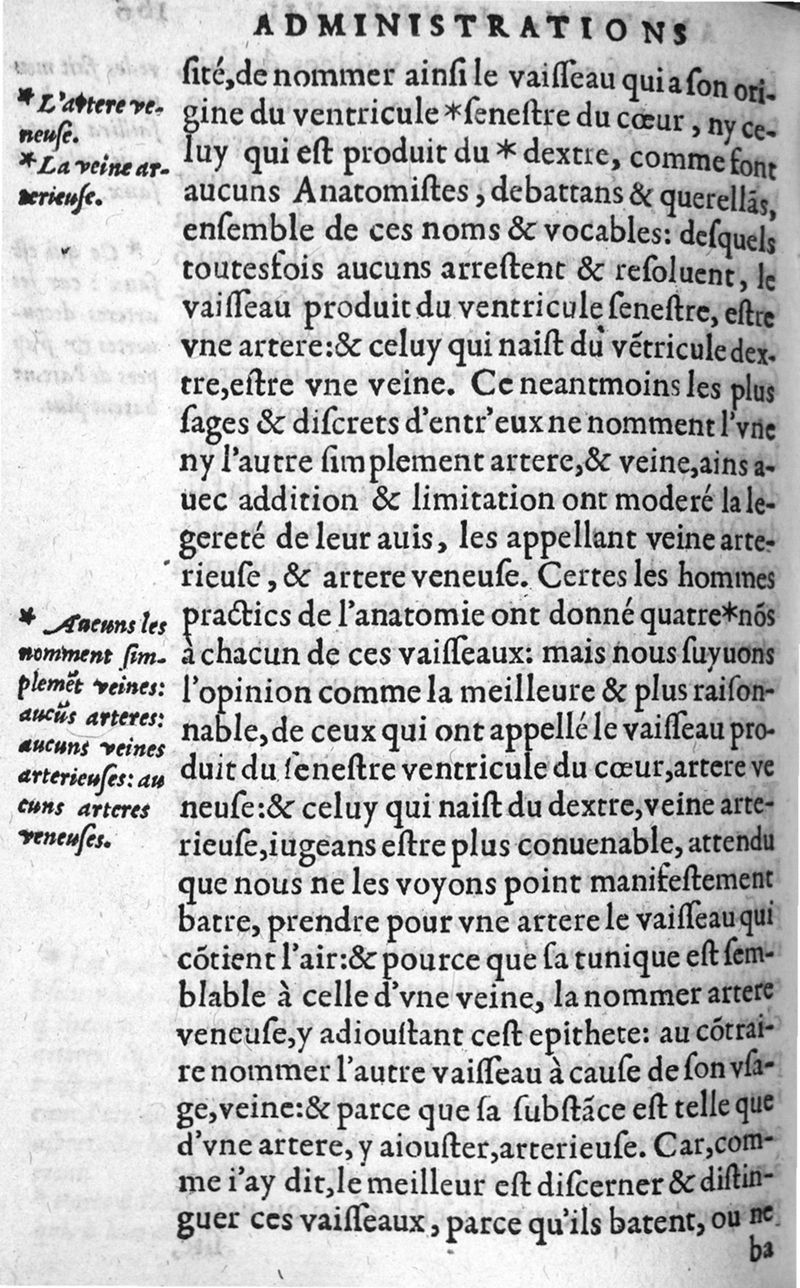 ADMINISTRATIONS
ſité,de nommer ainſi le vaiſſeau qui a ſon ori-
gine du ventricule *ſeneſtre du cœur , ny ce-
luy qui eſt produit du * dextre, comme font
aucuns Anatomiſtes , debattans & querellãs,
enſemble de ces noms & vocables: deſquels
toutesfois aucuns arreſtent & reſoluent, le
vaiſſeau produit du ventricule ſeneſtre, eſtre
vne artere:& celuy qui naiſt du vẽtricule dex-
tre,eſtre vne veine. Ce neantmoins les plus
ſages & diſcrets d'entr'eux ne nomment l'vne
ny l'autre ſimplement artere,& veine,ains a-
uec addition & limitation ont moderé la le-
gereté de leur auis, les appellant veine arte-
rieuſe , & artere veneuſe. Certes les hommes
practics de l'anatomie ont donné quatre*nõs
à chacun de ces vaiſſeaux: mais nous ſuyuons
l'opinion comme la meilleure & plus raiſon-
nable, de ceux qui ont appellé le vaiſſeau pro-
duit du ſeneſtre ventricule du cœur,artere ve
neuſe:& celuy qui naiſt du dextre,veine arte-
rieuſe,iugeans eſtre plus conuenable, attendu
que nous ne les voyons point manifeſtement
batre, prendre pour vne artere le vaiſſeau qui
cõtient l'air:& pource que ſa tunique eſt ſem-
blable à celle d'vne veine, la nommer artere
veneuſe,y adiouſtant ceſt epithete: au cõtrai-
re nommer l'autre vaiſſeau à cauſe de ſon vſa-
ge,veine:& parce que ſa ſubſtãce eſt telle que
d'vne artere, y aiouſter,arterieuſe. Car,com-
me i'ay dit,le meilleur eſt diſcerner & diſtin-
guer ces vaiſſeaux , parce qu'ils batent, ou ne
ba
* L'artere ve-
neuſe.
* La veine ar-
terieuſe.
* Aucuns les
nomment ſim-
plemẽt veines:
aucũs arteres:
aucuns veines
arterieuſes: au
cuns arteres
veneuſes.